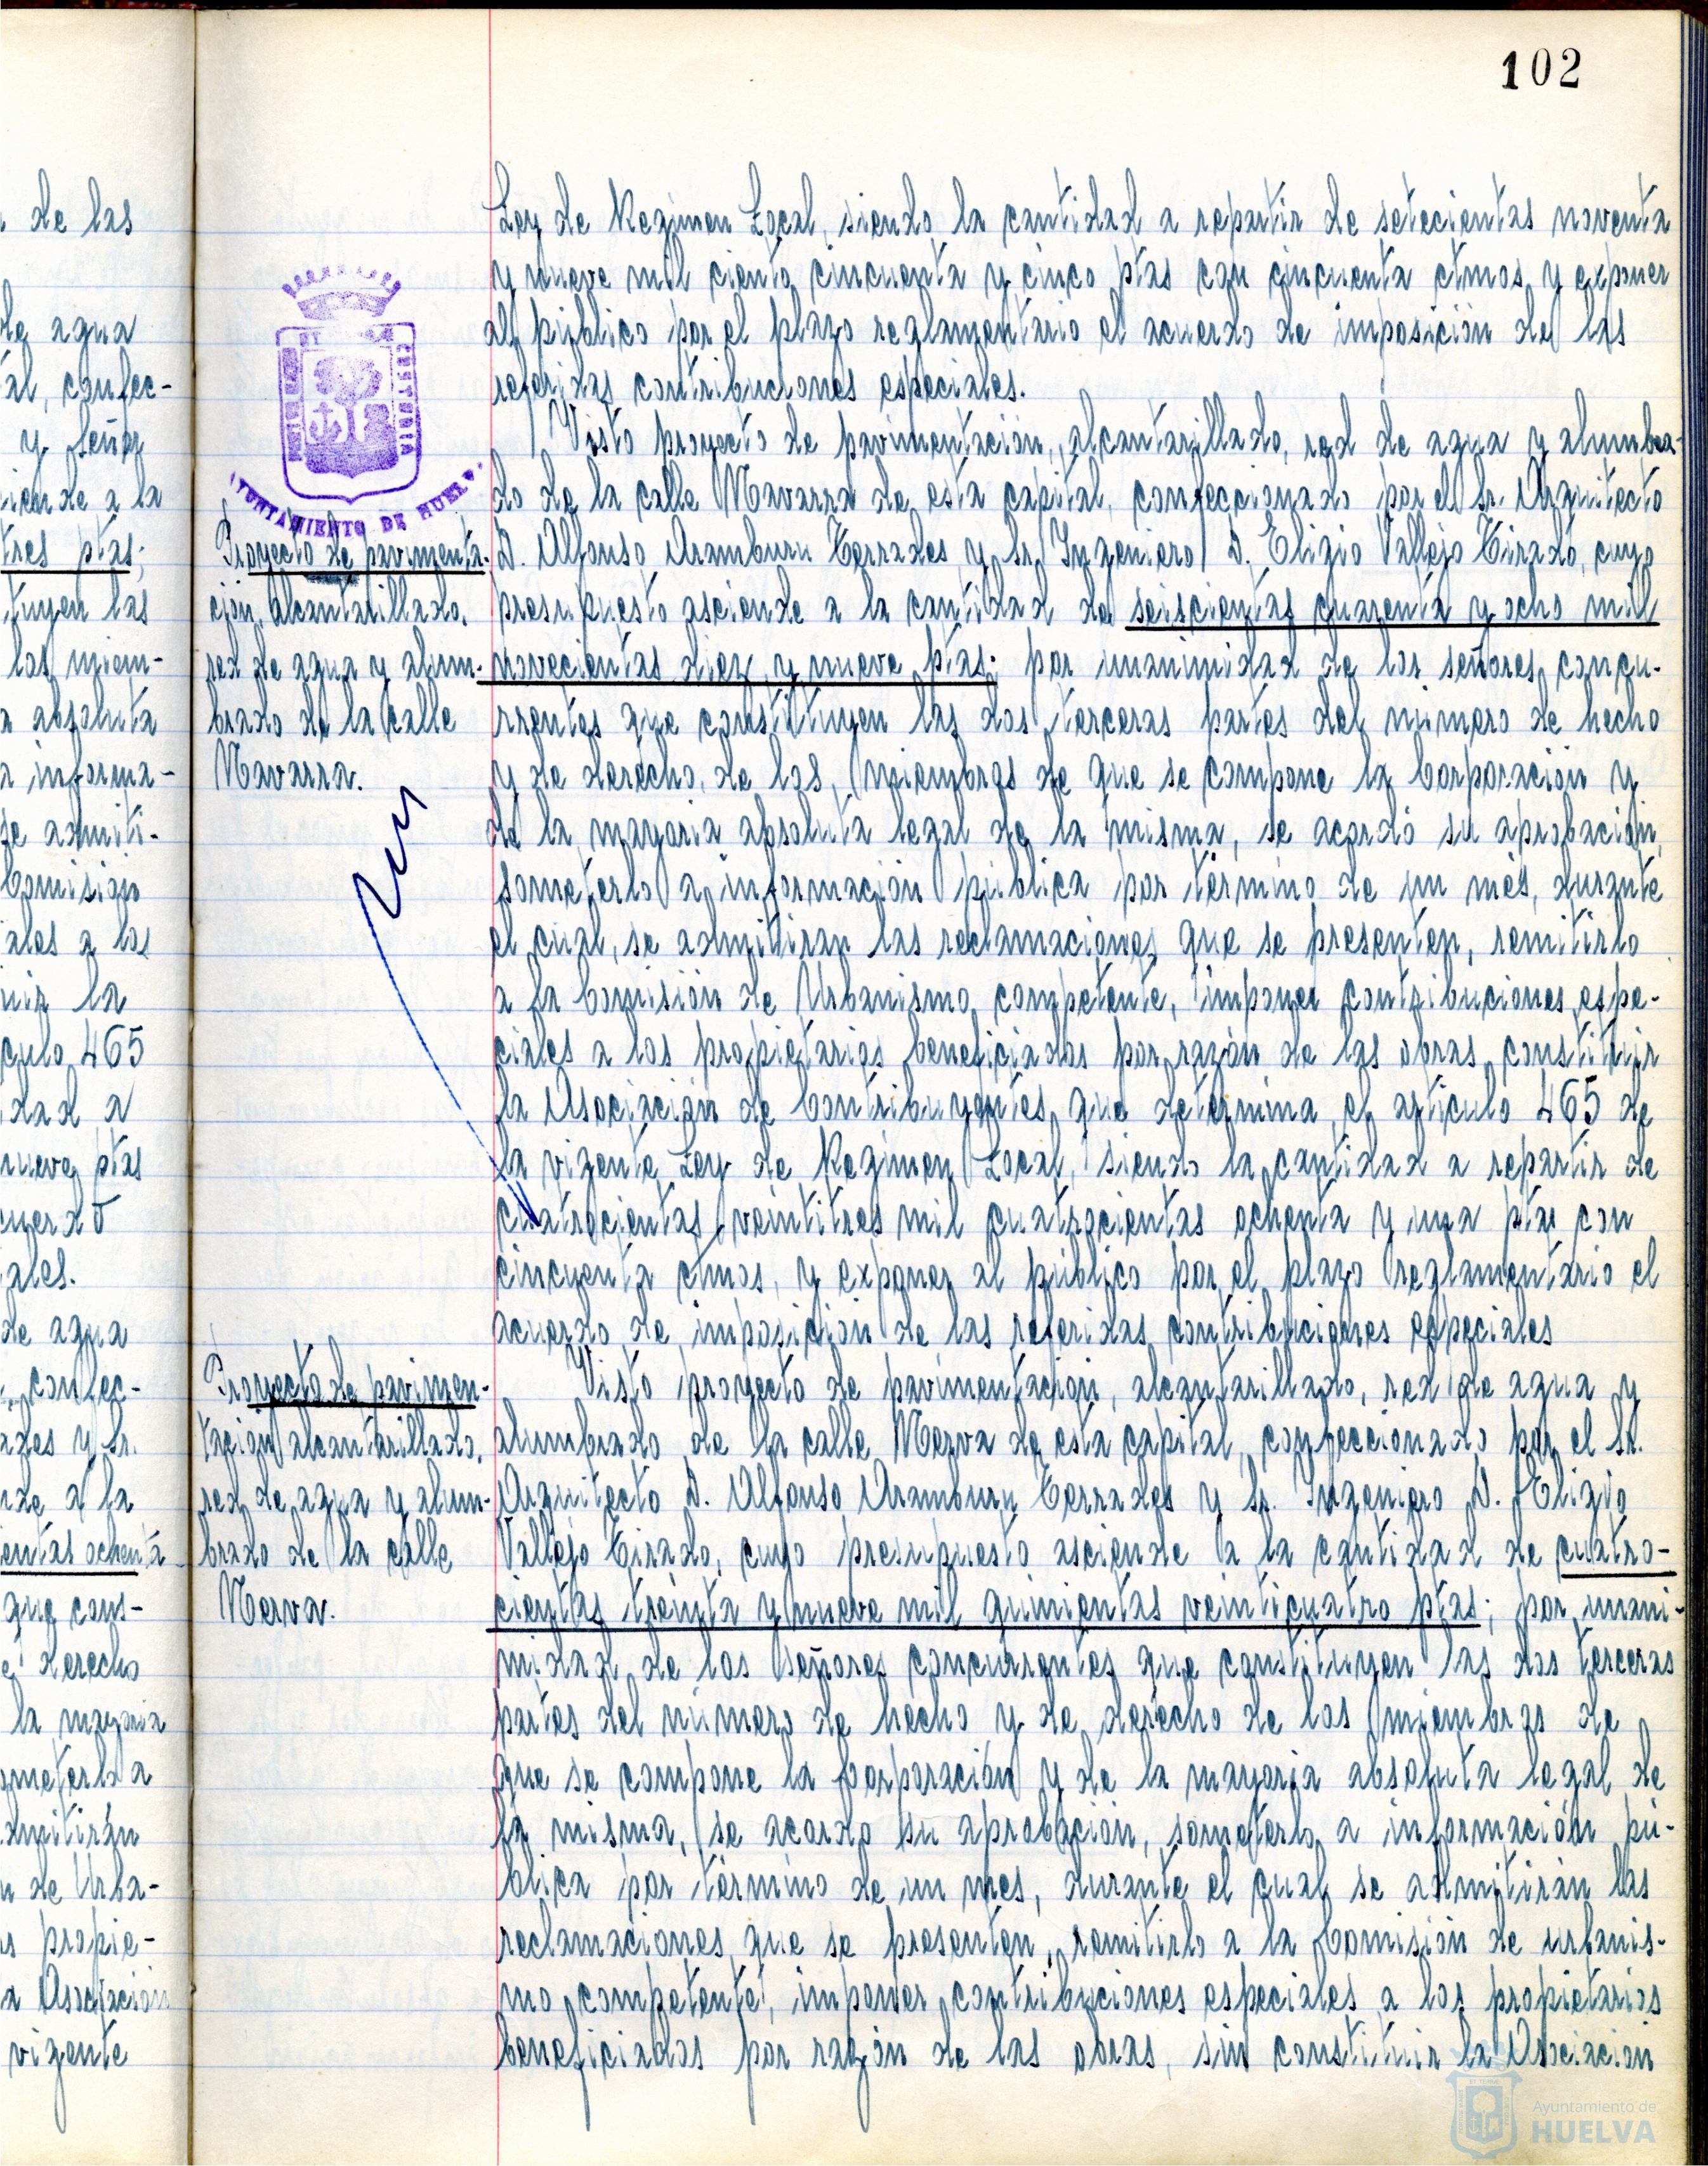 102
de las
de agua
tal, confec-
y Señor
ciende a la
tres ptas;
tuyen las
los miem-
a absoluta
a informa-
se admiti-
Comisión
ales a los
uir la
culo 465
dad a
nueve ptas
cuerdo
ales.
de agua
, confec-
ades y Sr.
nde a la
entas ochenta
que cons-
e derecho
la mayoria
ometerlo a
dmitirán
n de Urba-
s propie-
a Asociacion
vigente
AYUNTAMIENTO DE HUELVA
Proyecto de pavimenta-
cion, alcantarillado,
red de agua y alum-
brado de la calle
Navarra.
Proyecto de pavimen-
tacion, alcantarillado,
red de agua y alum-
brado de la calle
Nerva.
Ley de Regimen Local, siendo la cantidad a repartir de setecientas noventa
y nueve mil ciento cincuenta y cinco ptas con cincuenta ctmos, y exponer
al público por el plazo reglamentario el acuerdo de imposición de las
referidas contribuciones especiales.
Visto proyecto de pavimentación, alcantarillado, red de agua y alumbra-
do de la calle Navarra de esta capital, confeccionado por el Sr. Arquitecto
D. Alfonso Aramburu Terrades y Sr. Ingeniero D. Eligio Vallejo Tirado, cuyo
presupuesto asciende a la cantidad de seiscientas cuarenta y ocho mil
novecientas diez y nueve ptas; por unanimidad de los señores concu-
rrentes que constituyen las dos terceras partes del número de hecho
y de derecho, de los, miembros de que se compone la Corporación y
de la mayoria absoluta legal de la misma, se acordó su aprobación,
someterlo a información pública por término de un mes, durante
el cual, se admitiran las reclamaciones que se presenten, remitirlo
a la Comisión de Urbanismo competente, imponer contribuciones espe-
ciales a los propietarios beneficiados por razón de las obras, constituir
la Asociación de Contribuyentes que determina el artículo 465 de
la vigente Ley de Regimen Local, siendo la cantidad a repartir de
cuatrocientas veintitres mil cuatrocientas ochenta y una ptas con
cincuenta ctmos, y exponer al público por el plazo reglamentario el
acuerdo de imposicion de las referidas contribuciones especiales
Visto proyecto de pavimentación, alcantarillado, red de agua y
alumbrado de la calle Nerva de esta capital, confeccionado por el Sr.
Arquitecto D. Alfonso Aramburu Terrades y Sr. Ingeniero D. Eligio
Vallejo Tirado, cuyo presupuesto asciende a la cantidad de cuatro-
cientas treinta y nueve mil quinientas veinticuatro ptas; por unani-
midad de los señores concurrentes que constituyen las dos terceras
partes del número de hecho y de derecho de los miembros de
que se compone la Corporación y de la mayoria absoluta legal de
la misma, se acordo su aprobación, someterlo a información pú-
blica por término de un mes, durante el cual se admitirán las
reclamaciones que se presenten, remitirlo a la Comisión de urbanis-
mo competente, imponer contribuciones especiales a los propietarios
beneficiados por razón de las obras, sin constituir la Asociacion
Ayuntamiento de
HUELVA